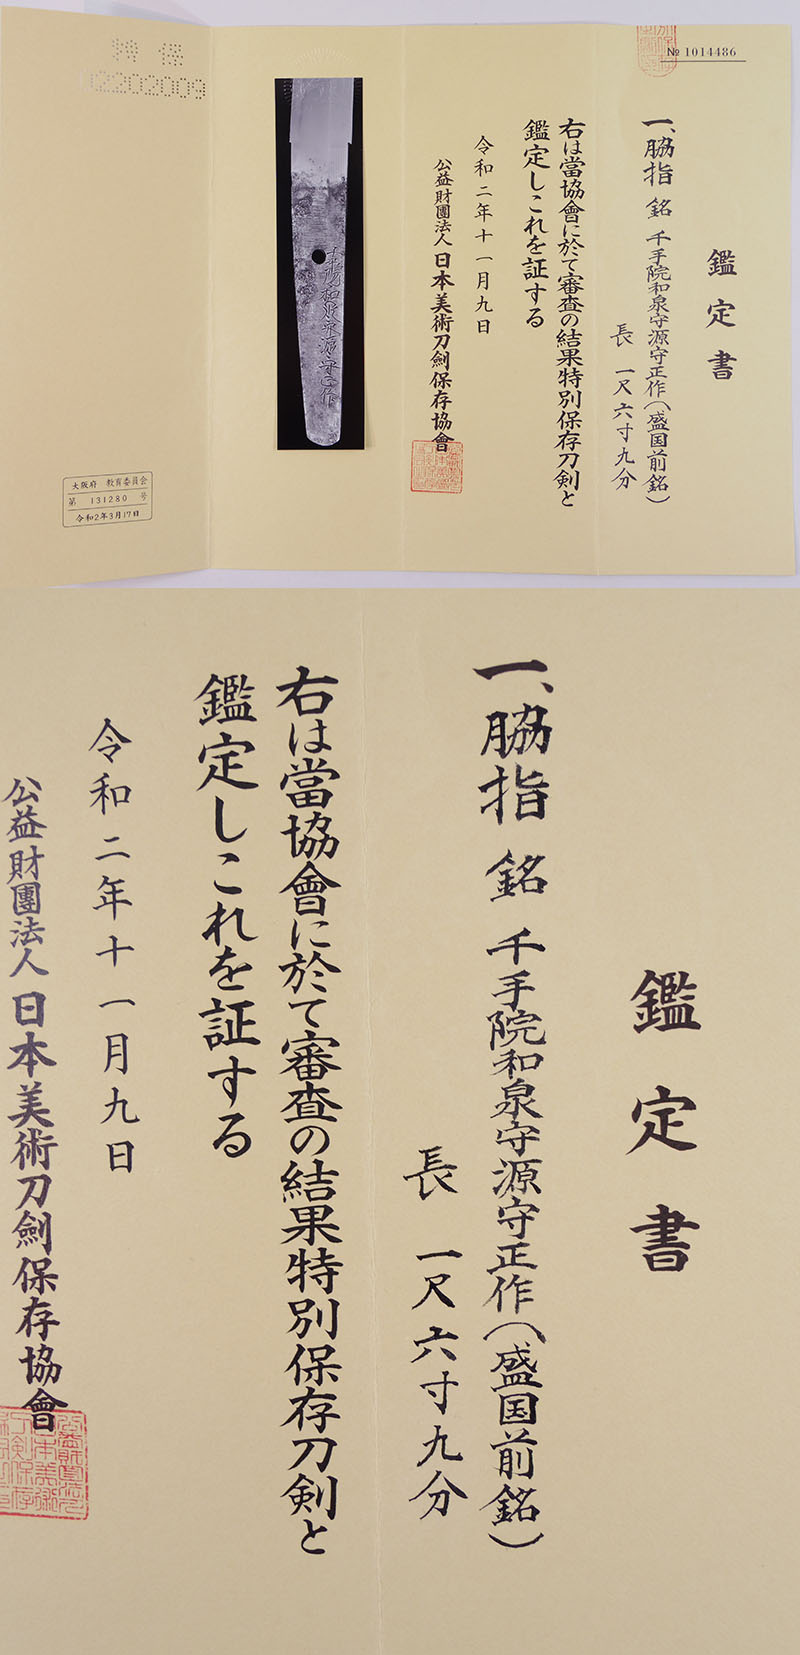 № 1014486
鑑定書
一、脇指 銘 千手院和泉守源守正作（盛国前銘）
長 一尺六寸九分
右は當協會に於て審査の結果特別保存刀剣と
鑑定しこれを証する
令和二年十一月九日
公益財團法人 日本美術刀劍保存協會
千手院和泉守源守正作
特保
02202009
大阪府 教育委員会
第 131280 号
令和2年3月17日
鑑定書
一、脇指 銘 千手院和泉守源守正作（盛国前銘）
長 一尺六寸九分
右は當協會に於て審査の結果特別保存刀剣と
鑑定しこれを証する
令和二年十一月九日
公益財團法人 日本美術刀劍保存協會